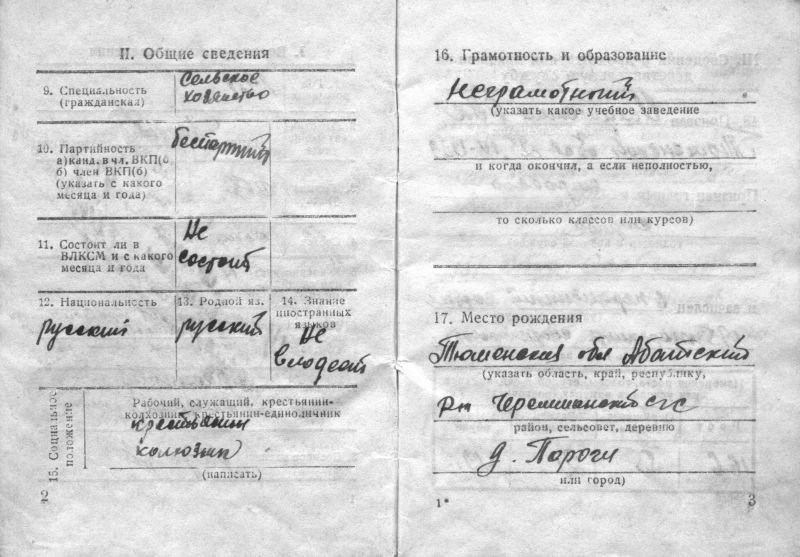 II. Общие сведения
9. Специальность
(гражданская)
Сельское
хозяйство
10. Партийность
а) канд. в чл. ВКП(б
б) член ВКП(б)
(указать с какого
месяца и года)
беспартний
11. Состоит ли в
ВЛКСМ и с какого
месяца и года
Не
состоит
12. Национальность
русский
13. Родной яз.
русский
14. Знание
иностранных
языков
Не
владеет
15. Социальное
положение
Рабочий, служащий, крестьянин-
колхозник, крестьянин-единоличник
крестьянин
колхозник
(написать)
2
16. Грамотность и образование
Неграмотный
(указать какое учебное заведение
и когда окончил, а если неполностью,
то сколько классов или курсов)
17. Место рождения
Тюменская обл Абатский
(указать область, край, республику,
рн Черемшанский с/с
район, сельсовет, деревню
д. Пороги
или город)
1*
3